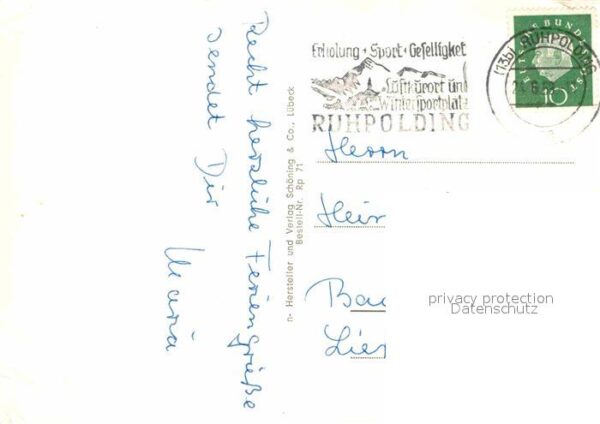 Recht herzliche Feriengrüße
sendet Dir
Maria
n- Hersteller und Verlag Schöning & Co., Lübeck
Bestell-Nr. Rp 71
Erholung + Sport + Geselligkeit
Luftkurort und
Wintersportplatz
RUHPOLDING
(13b) RUHPOLDING
10
Herrn
Hein
Bau
Lies
privacy protection
Datenschutz